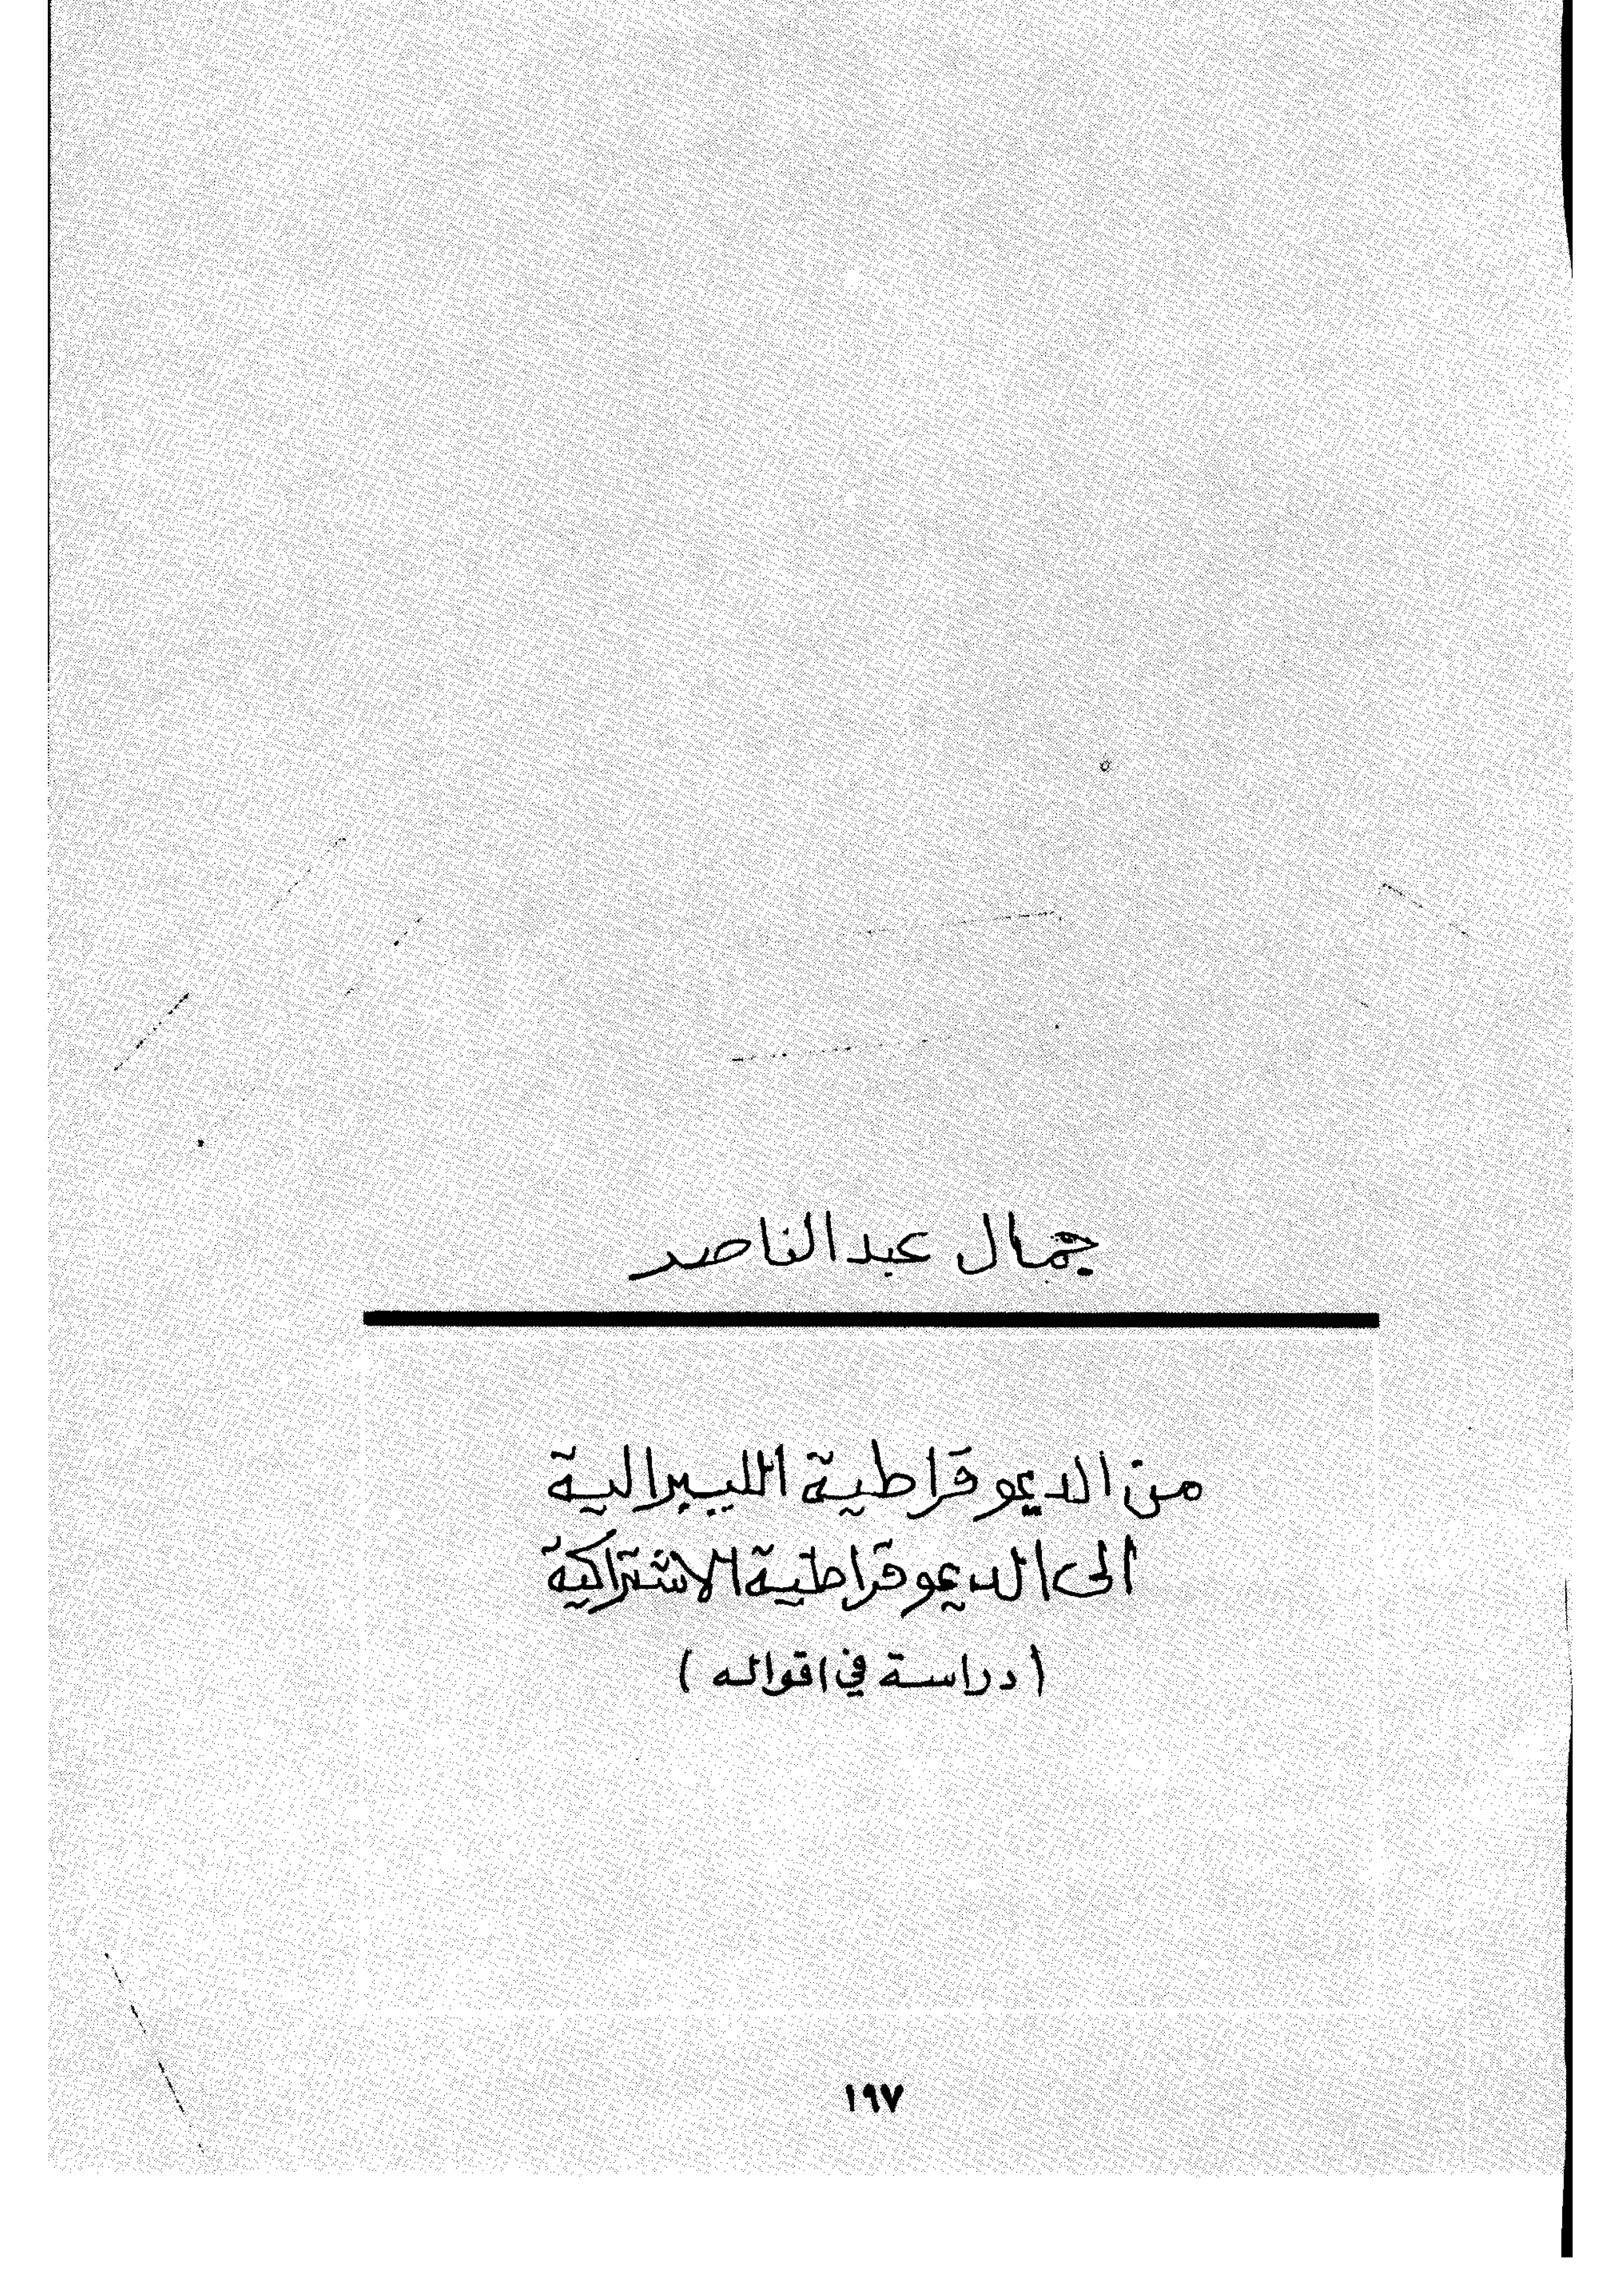 جمال عبد الناصر
من الديموقراطية الليبرالية
الى الديموقراطية الاشتراكية
( دراسة في اقواله )
١٩٧